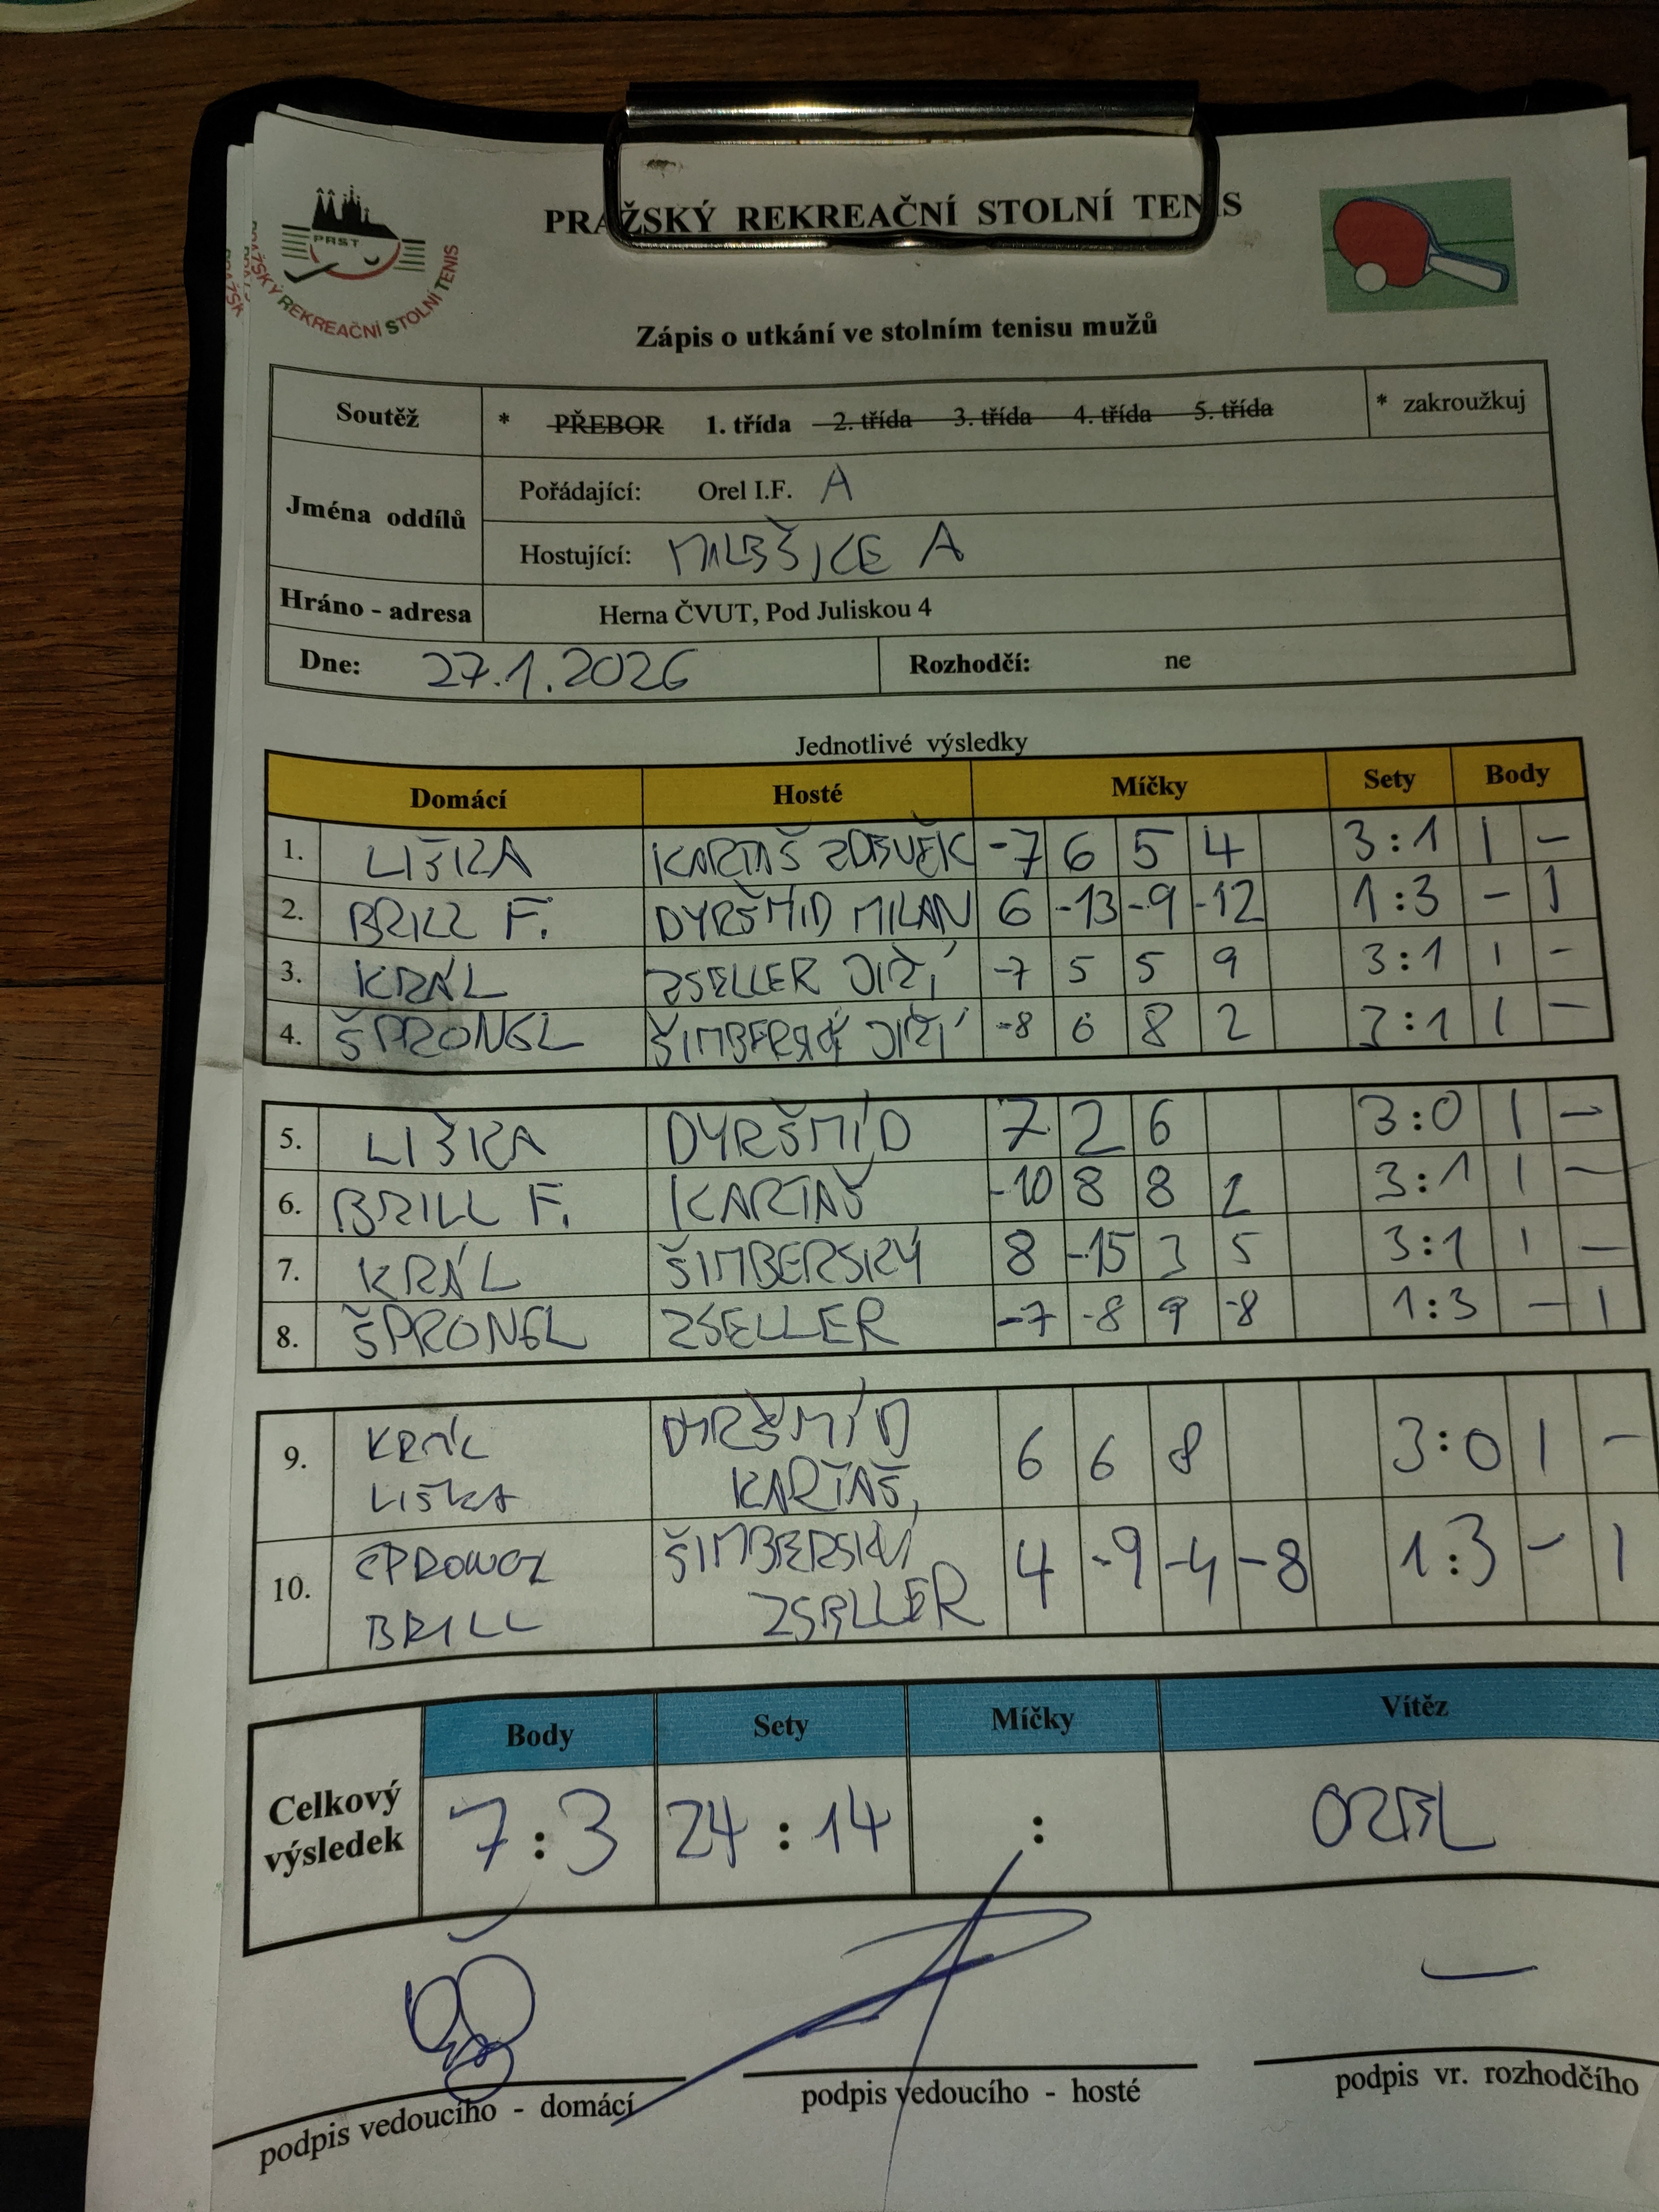 PRAŽSKÝ REKREAČNÍ STOLNÍ TENIS
PRST
PRAŽSKÝ REKREAČNÍ STOLNÍ TENIS
Zápis o utkání ve stolním tenisu mužů
Soutěž * PŘEBOR 1. třída 2. třída 3. třída 4. třída 5. třída * zakroužkuj
Jména oddílů
Pořádající: Orel I.F. A
Hostující: MALEŠICE A
Hráno - adresa Herna ČVUT, Pod Juliskou 4
Dne: 27.1.2026 Rozhodčí: ne
Jednotlivé výsledky
Domácí Hosté Míčky Sety Body
1. LIŠKA KARTAŠ ZDENĚK -7 6 5 4 3:1 1 -
2. BRILL F. DYRŠMÍD MILAN 6 -13 -9 -12 1:3 - 1
3. KRÁL ZSELLER JIŘÍ -7 5 5 9 3:1 1 -
4. ŠPRONGL ŠIMBERSKÝ JIŘÍ -8 6 8 2 3:1 1 -
5. LIŠKA DYRŠMÍD 7 2 6 3:0 1 -
6. BRILL F. KARTAŠ -10 8 8 2 3:1 1 -
7. KRÁL ŠIMBERSKÝ 8 -15 3 5 3:1 1 -
8. ŠPRONGL ZSELLER -7 -8 9 -8 1:3 - 1
9. KRÁL DYRŠMÍD 6 6 8 3:0 1 -
LIŠKA KARTAŠ
10. ŠPRONGL ŠIMBERSKÝ 4 -9 -4 -8 1:3 - 1
BRILL ZSELLER
Celkový výsledek
Body Sety Míčky Vítěz
7:3 24:14 : OREL
podpis vedoucího - domácí podpis vedoucího - hosté podpis vr. rozhodčího